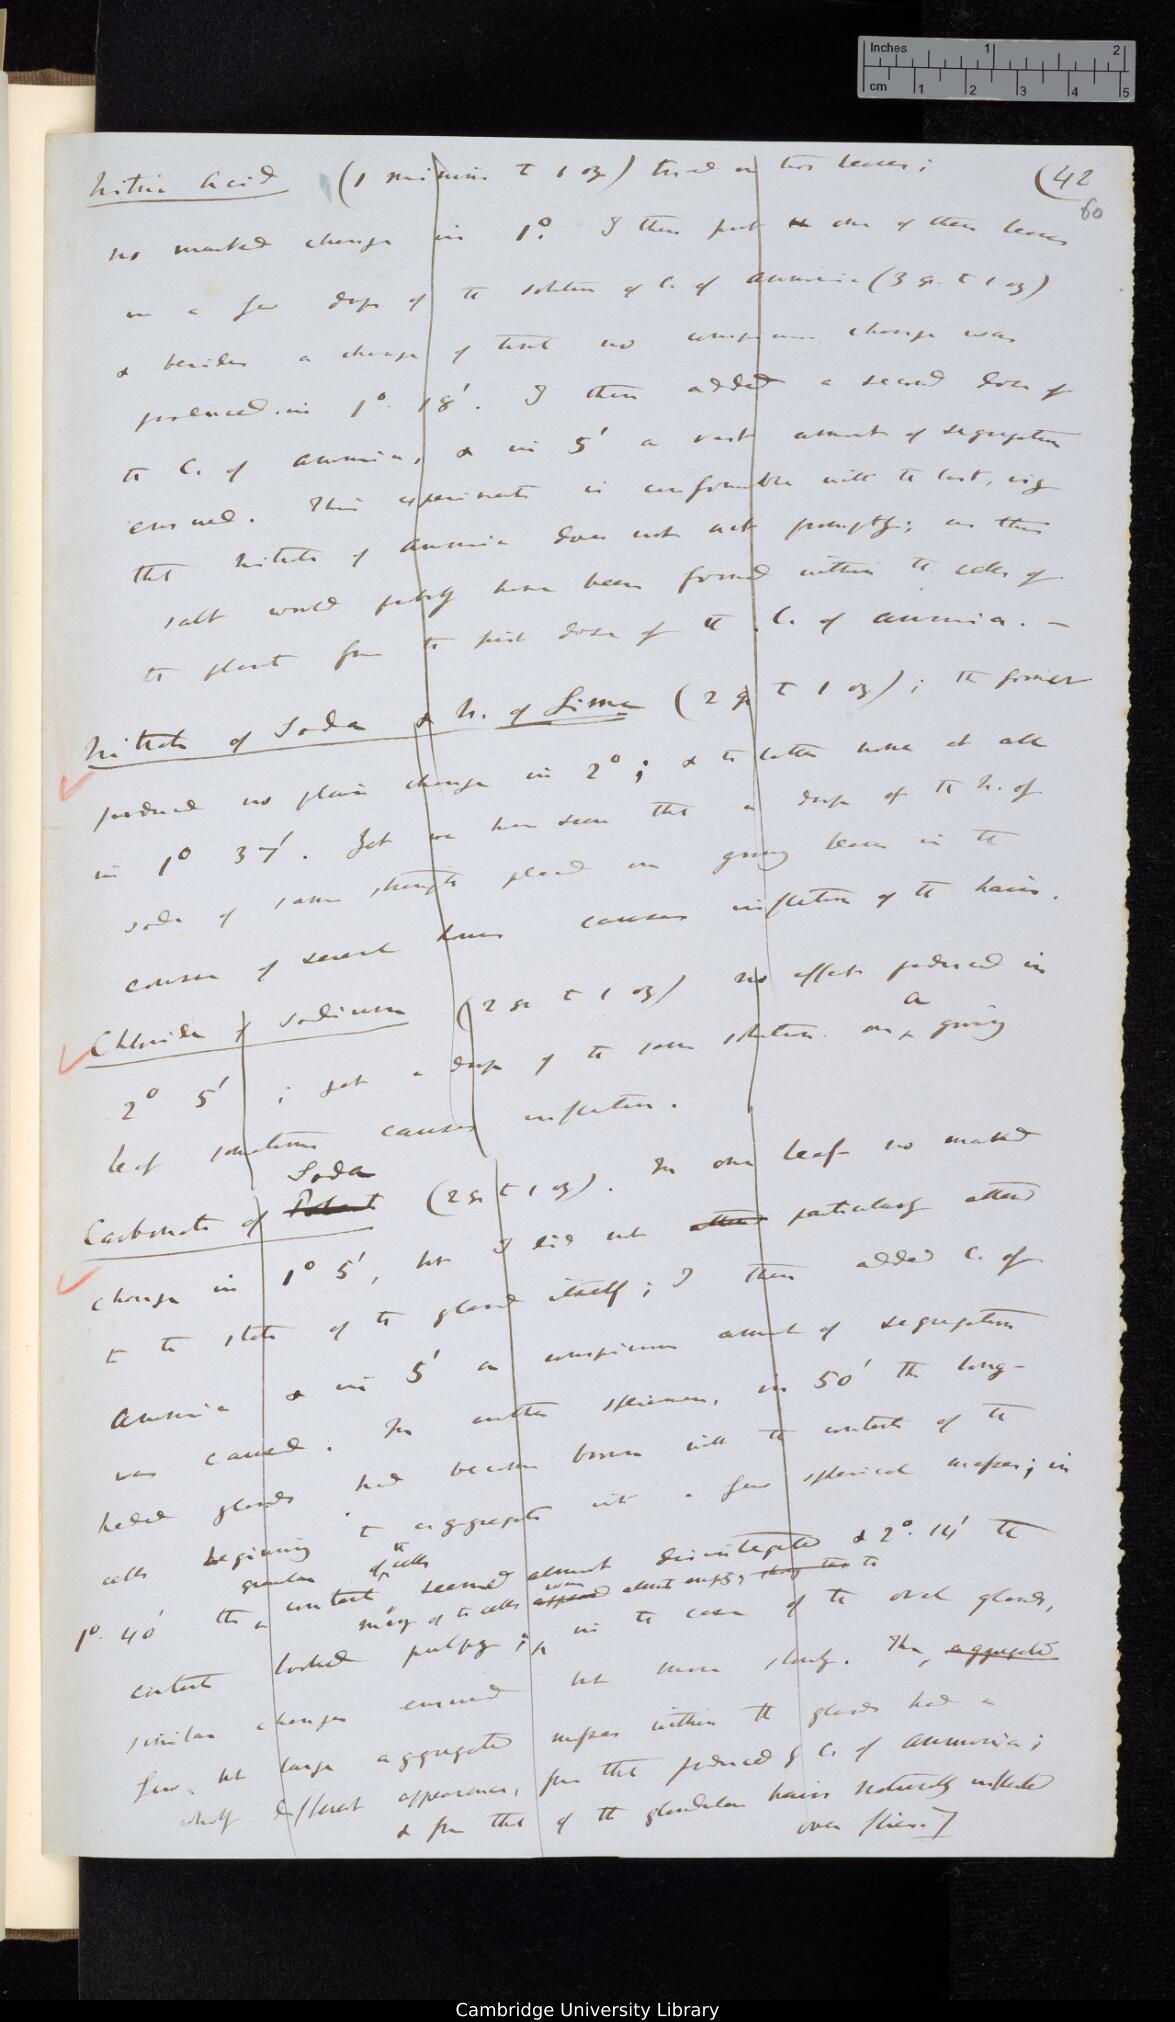 Inches 1 2
cm 1 2 3 4 5
(42
60
Nitric Acid (1 minim to 1 oz) tried on two leaves;
no marked change in 1°. I then put one of these leaves
in a few drops of the solution of C. of ammonia (3 gr. to 1 oz)
& besides a change of tint no conspicuous change was
produced in 1° 18'. I then added a second dose of
the C. of ammonia, & in 5' a vast amount of segregation
ensued. This experiment is conformable with the last, viz
that nitrate of ammonia does not act promptly; as this
salt would probably have been formed within the cells of
the plant from the first dose of the C. of ammonia. —
Nitrate of Soda & N. of Lime (2 gr to 1 oz); the former
produced no plain change in 2°; & the latter none at all
in 1° 37'. Yet we have seen that a drop of the N. of
soda of same strength placed on growing leaves in the
course of several hours causes inflection of the hairs.
Chloride of Sodium (2 gr to 1 oz) no effect produced in
2° 5'; yet a drop of the same solution on a growing
leaf sometimes causes inflection.
Carbonate of Potash Soda (2 gr to 1 oz). In one leaf no marked
change in 1° 5', but I did not attend particularly attend
to the state of the gland itself; I then added C. of
ammonia & in 5' a conspicuous amount of segregation
was caused. In another specimen, in 50' the long-
headed glands had become brown with the contents of the
cells beginning to aggregate into a few spherical masses; in
1° 40' the granular content of the cells seemed almost disintegrated & 2° 14' the
contents looked pulpy; many of the cells appeared were almost empty, in the case of the oval glands,
similar changes ensued but more slowly. The aggregated
few but large aggregated masses within the glands had a
wholly different appearance, from that produced by C. of ammonia;
& from that of the glandular hairs naturally inflected
over flies.]
Cambridge University Library